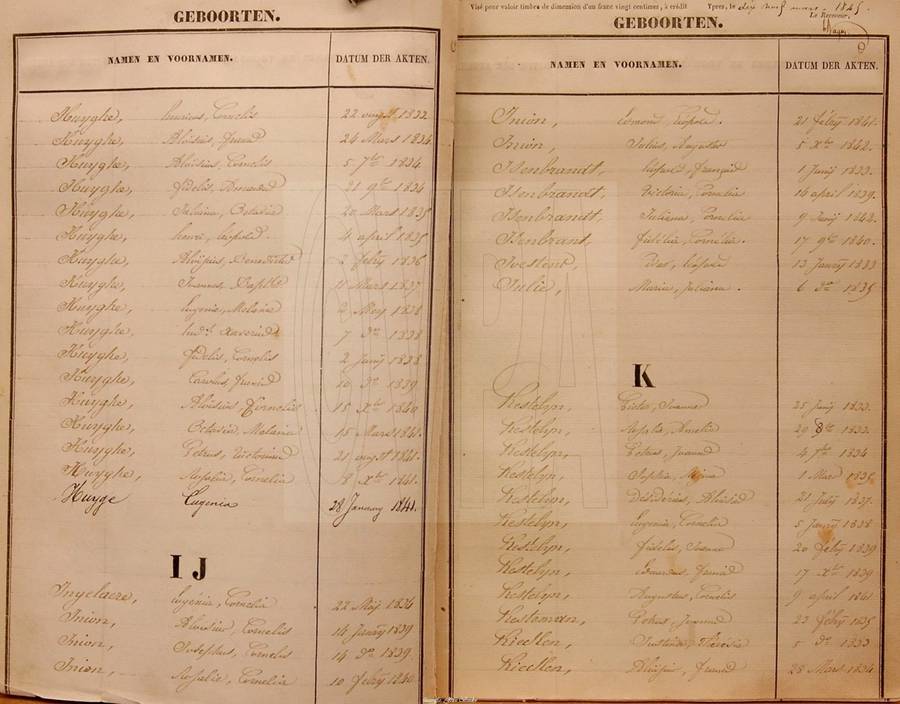 GEBOORTEN.
NAMEN EN VOORNAMEN. DATUM DER AKTEN.
Huyghe, Henricus, Cornelis 22 augt 1832.
Huyghe, Aloïsius, 24 Mars 1834
Huyghe, Aloïsius, Cornelis 5 7bre 1834
Huyghe, Fidelis, Amandus 21 9bre 1834
Huyghe, Juliana, Octavia 20 Mars 1835
Huyghe, Henri, Léopold. 4 april 1835
Huyghe, Aloïsius, Benedictus 2 febry 1836
Huyghe, Joannes, Baptiste 11 Mars 1837
Huyghe, Eugenia, Melanie 2 Mey 1838
Huyghe, Xaverius 7 do 1838
Huyghe, Fidelis, Cornelius 2 Junij 1838
Huyghe, Carolus, 10 do 1839
Huyghe, Aloïsius Cornelis 15 Xbre 1840
Huyghe, Octavia, Melanie 15 Mars 1841.
Huyghe, Petrus, Victorinus 21 augt 1841.
Huyghe, Rosalie, Cornelia 8 Xbre 1841.
Huyge Eugenia 28 January 1841.
I J
Ingelaere, Eugénia, Cornelia 22 Meij 1834
Inion, Aloïsius, Cornelis 14 Janry 1839
Inion, Josephus, Cornelis 14 do 1839.
Inion, Rosalie, Cornelia 10 febry 1840
Visé pour valoir timbre de dimension d'un franc vingt centimes, à crédit Ypres, le dix neuf mars 1845.
Le Receveur,
GEBOORTEN.
NAMEN EN VOORNAMEN. DATUM DER AKTEN.
Inion, Edmond, Léopold. 21 febry 1841.
Inion, Julius, Augustus 5 Xbre 1842.
Isenbrandt, Léopold, François 1 Junij 1833.
Isenbrandt, Victoria, Cornelia 14 april 1839.
Isenbrandt, Juliana, Cornelia 9 1842.
Isenbrant, Fidélia, Cornélia. 17 9bre 1840.
Léopold 13 Janry 1833
Julie, Maria, Juliana. 6 do 1835
K
Kestelyn, Joanna 25 Junij 1833.
Kestelyn, Sophia, Amelia 20 8bre 1833.
Kestelyn, Petrus, Joannes 4 7bre 1834
Kestelyn, Sophia, 1 Mars
Kestelyn, Désidérius, Aloïsius 21 July 1837.
Kestelyn, Eugenia, Cornelia 5 Janry 1838
Kestelyn, Fidelis, Joannes 20 febry 1839
Kestelyn, Eduardus, 17 Xbre 1839
Kestelyn, Augustus, Cornelis 9 april 1841
Kesteman, Petrus, Joannes 23 febry 1835
Kietlen, 5 do 1833
Kietlen, Aloïsius, 28 Mars 1834